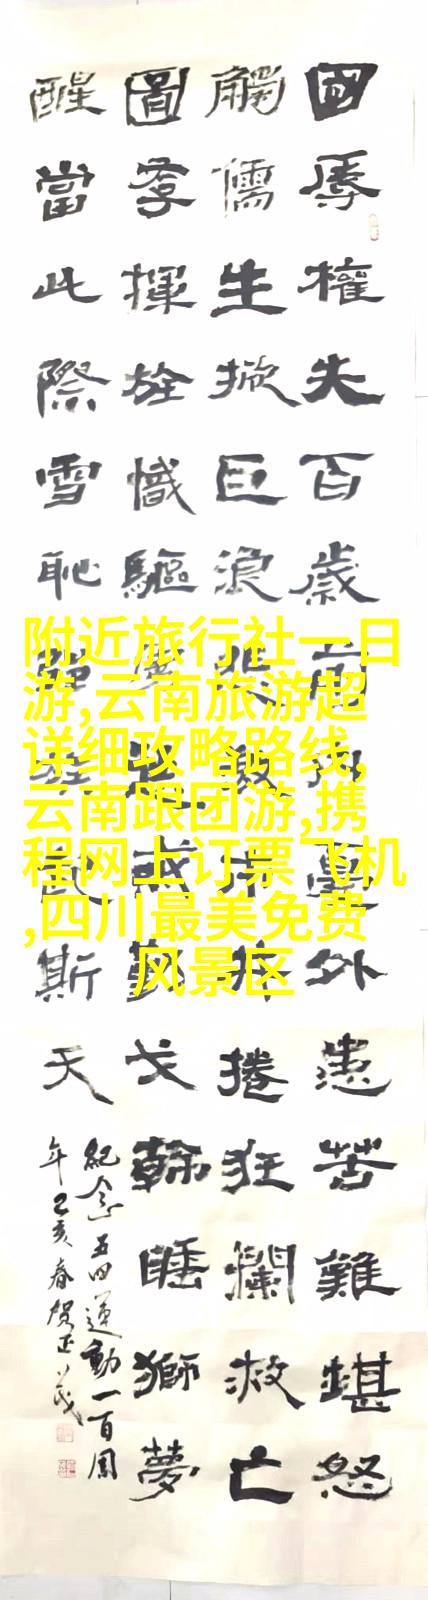 國辱權失百歲前內憂外患苦難堪怒
觸儒生掀巨浪 捲狂瀾救亡
圖存揮旌幟驅 戈 睡獅夢
醒當此際雪恥 斯天
紀念五四運動一百周
年己亥春贺正茂
附近旅行社一日
游,云南旅游超
详细攻略路线,
云南跟团游,携
程网上订票飞机
,四川最美免费
风景区